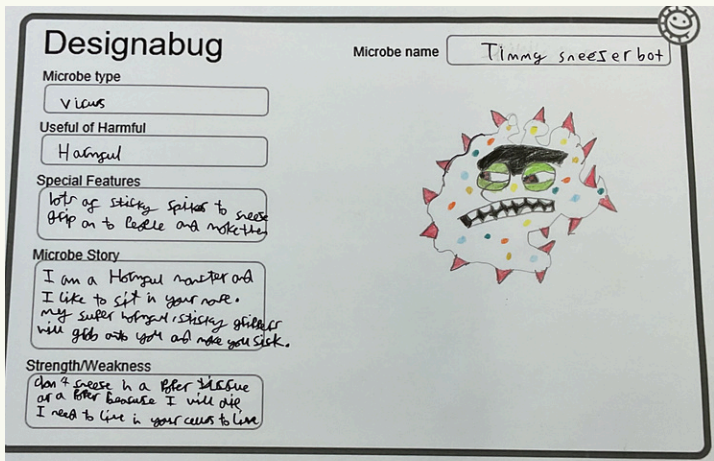 Designabug
Microbe name
Timmy sneezer bot
Microbe type
virus
Useful of Harmful
Harmful
Special Features
lots of sticky spikes to sneeze
grip on to people and make them
Microbe Story
I am a Harmful monster and
I like to sit in your nose.
my super harmful, sticky grippers
will grab onto you and make you sick.
Strength/Weakness
don't sneeze in a
or a because I will die,
I need to live in your cells to live